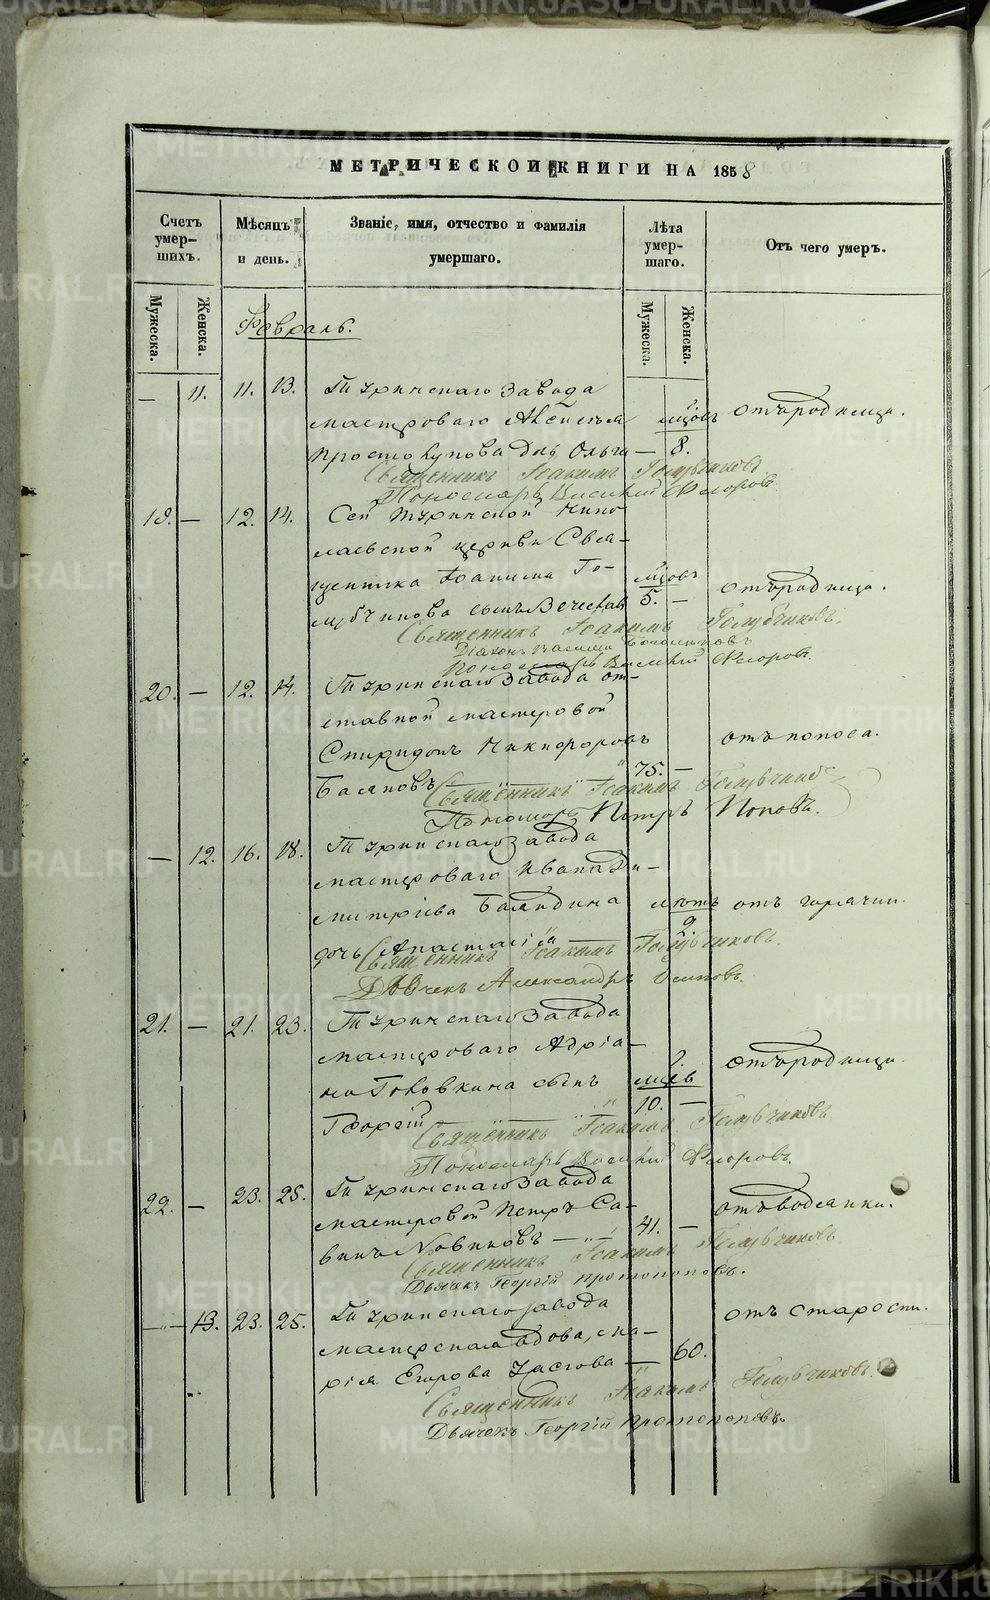 МЕТРИЧЕСКОЙ КНИГИ НА 1858
Счетъ умер-шихъ.
Мѣсяцъ и день.
Званіе, имя, отчество и фамилія умершаго.
Лѣта умер-шаго.
Отъ чего умеръ.
Мужеска. Женска.
Мужеска. Женска.
Февраль.
— 11. 11. 13. Туринскаго завода
мастероваго Алексѣя мцовъ отъ родимца.
Простокупова дчь Ольга — 8.
Священникъ Іоакимъ Голубчиковъ
Пономарь Василий Флоровъ
19. — 12. 14. Сей Туринской Нико-
лаевской церкви Свя-
щенника Іоакима Го- мцовъ отъ родимца.
лубчикова сынъ Вячеслав 5. —
Священникъ Іоакимъ Голубчиковъ.
Діаконъ Василий
Пономарь Василий Флоровъ
20. — 12. 14. Туринскаго завода от-
ставной мастеровой
Спиридонъ Никифоровъ отъ поноса.
Баляновъ 75. —
Священникъ Іоакимъ Голубчиковъ
Пономарь Петръ Поповъ.
— 12. 16. 18. Туринскаго завода
мастероваго Ивана Ди-
митріева Баландина лѣтъ отъ горячки.
дочь Анастасія 9
Священникъ Іоакимъ Голубчиковъ.
Дьячекъ Александръ Осиповъ.
21. — 21. 23. Туринскаго завода
мастероваго Адріа-
на Головкина сынъ мцвъ отъ родимца.
Георгій 10. —
Священникъ Іоакимъ Голубчиковъ
Пономарь Василий Флоровъ.
22. — 23. 25. Туринскаго завода
мастеровой Петръ Са- отъ водянки.
винъ Новиковъ — 41. —
Священникъ Іоакимъ Голубчиковъ
Дьячекъ Георгій Протопоповъ.
— 13. 23. 25. Туринскаго завода отъ старости.
мастерская вдова, Ма-
рія Егорова — 60.
Священникъ Іоакимъ Голубчиковъ.
Дьячекъ Георгій Протопоповъ.
METRIKI.GASO-URAL.RU